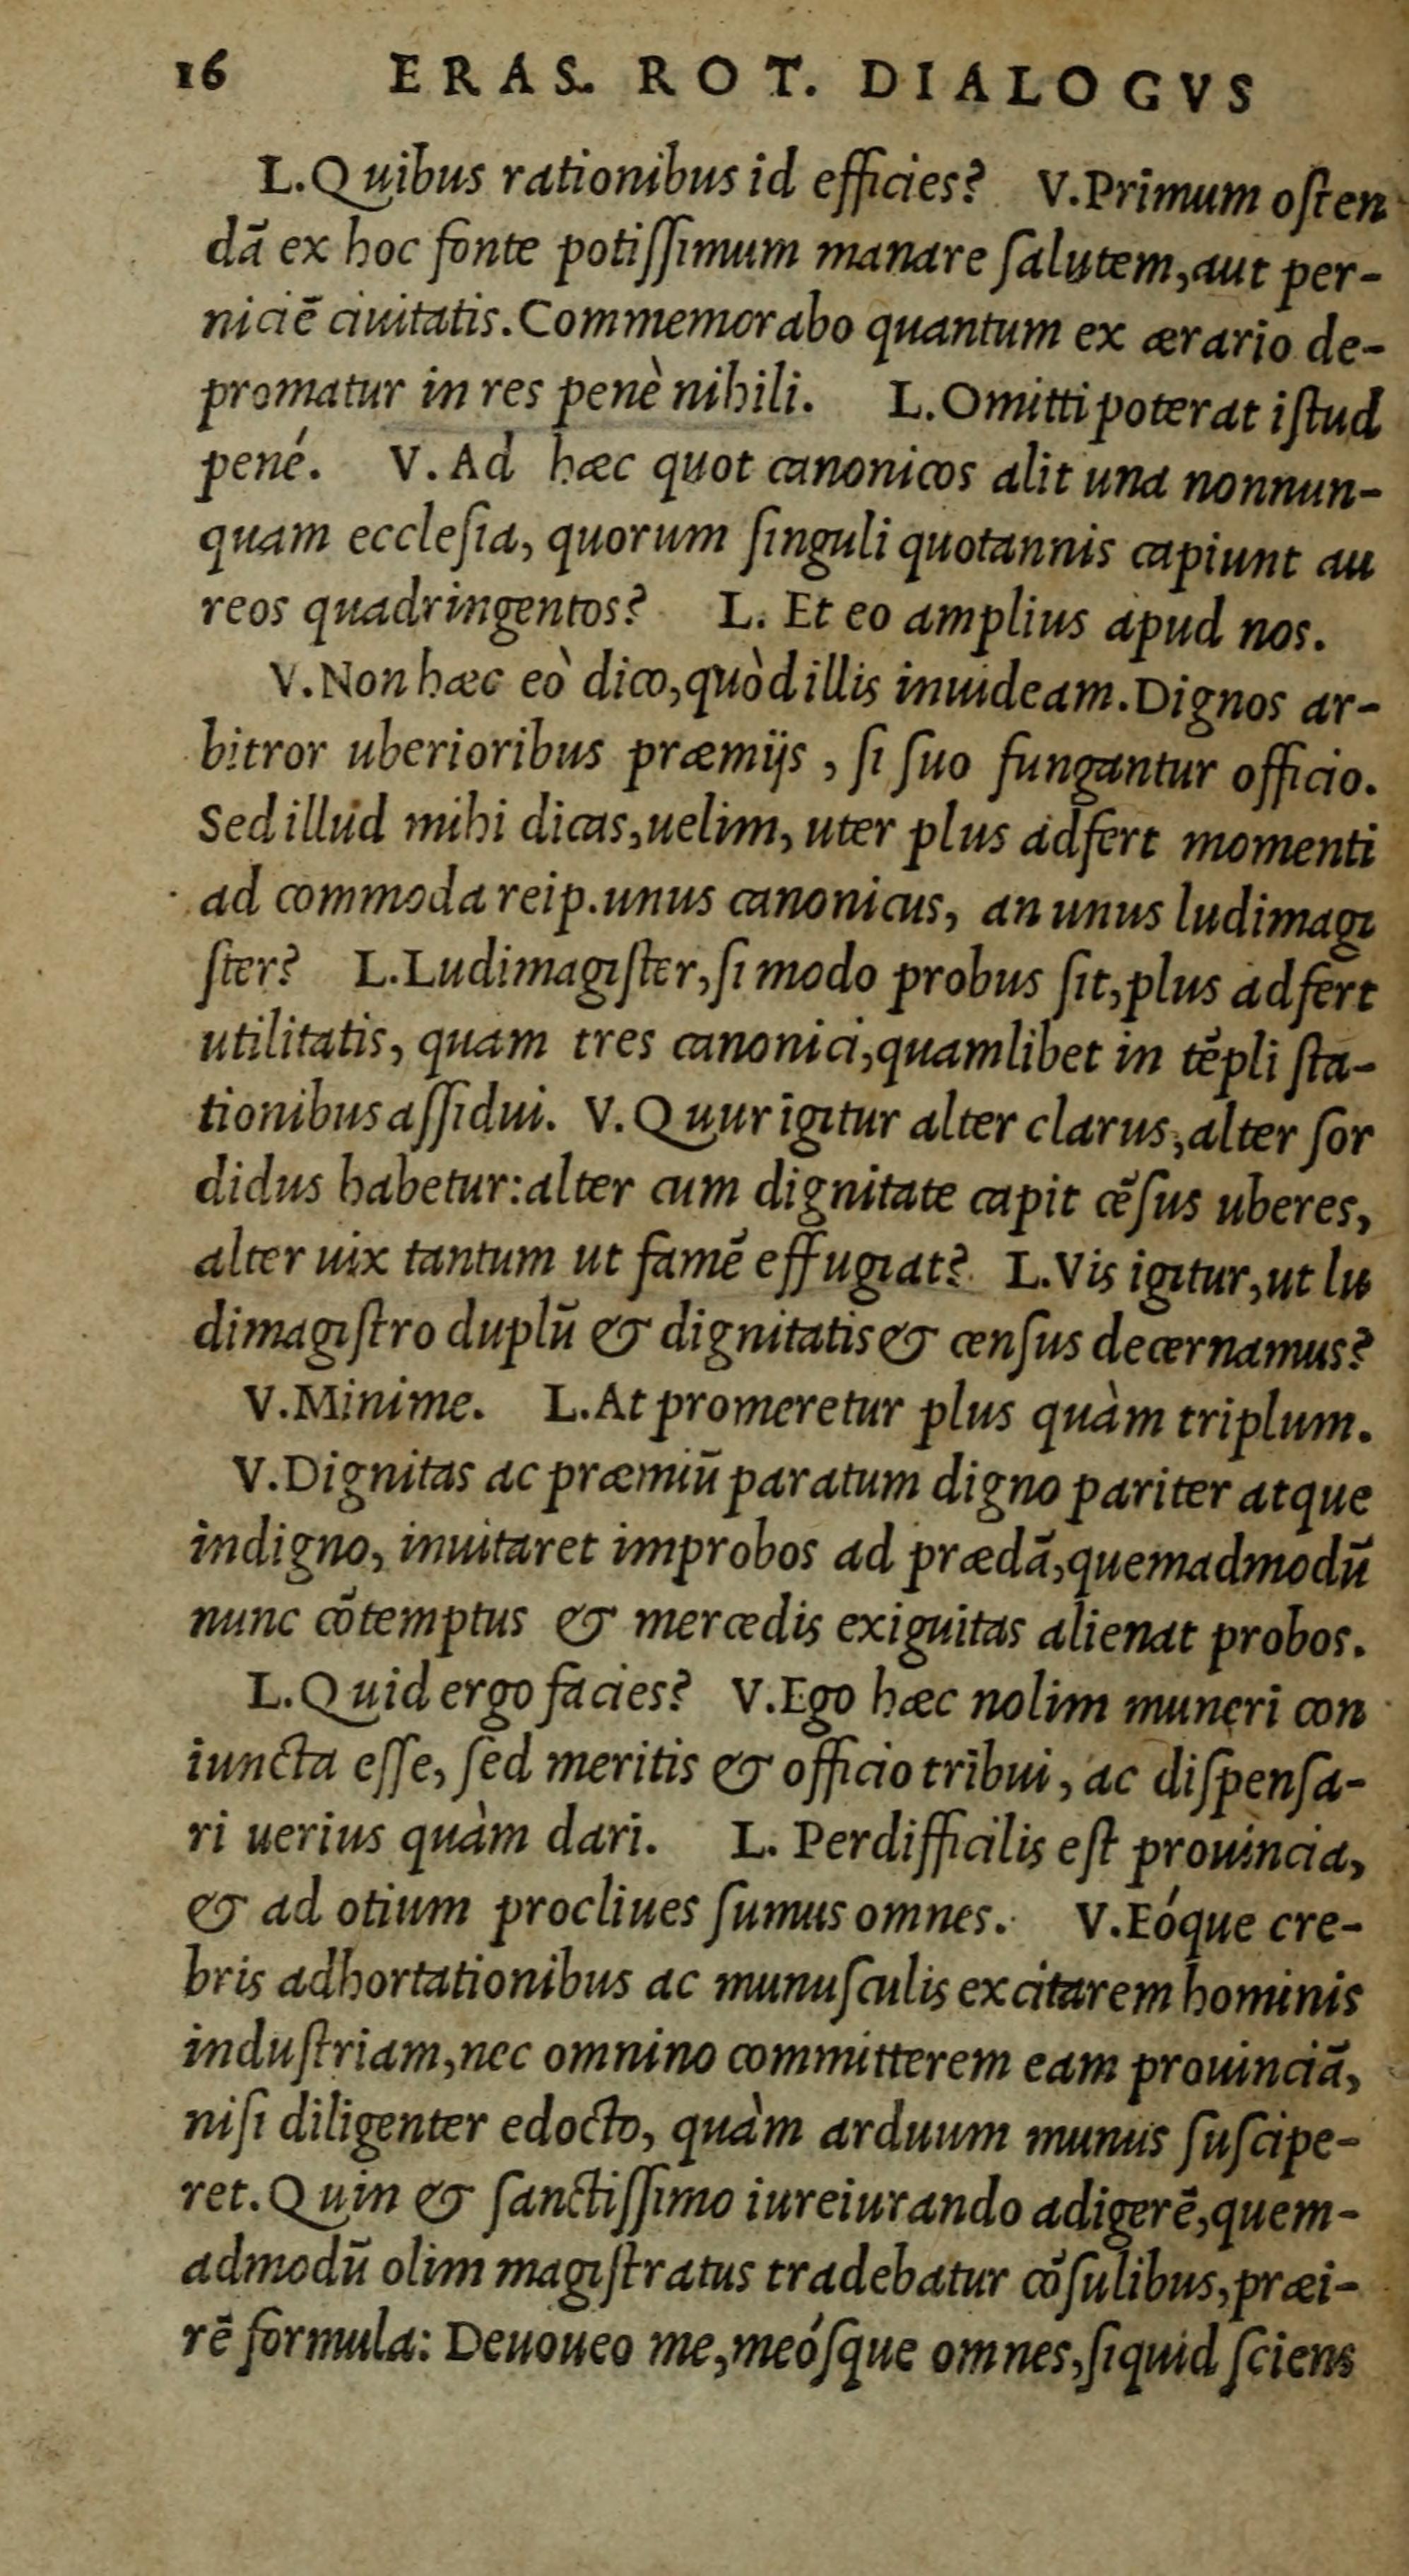 16 ERAS. ROT. DIALOGVS
L.Quibus rationibus id efficies? V.Primum oſten
dā ex hoc fonte potiſſimum manare ſalutem,aut per-
niciē ciuitatis.Commemorabo quantum ex ærario de-
promatur in res penè nihili. L.Omitti poterat iſtud
pené. V. Ad hæc quot canonicos alit una nonnun-
quam eccleſia, quorum ſinguli quotannis capiunt au
reos quadringentos? L. Et eo amplius apud nos.
V.Non hæc eò dico,quòd illis inuideam.Dignos ar-
bitror uberioribus præmijs , ſi ſuo fungantur officio.
Sed illud mihi dicas,uelim, uter plus adfert momenti
ad commoda reip.unus canonicus, an unus ludimagi
ſter? L.Ludimagiſter,ſi modo probus ſit,plus adfert
utilitatis, quam tres canonici,quamlibet in tēpli ſta-
tionibus aſſidui. V.Quur igitur alter clarus,alter ſor
didus habetur:alter cum dignitate capit cēſus uberes,
alter uix tantum ut famē effugiat? L.Vis igitur,ut lu
dimagiſtro duplū & dignitatis & cenſus decernamus?
V.Minime. L.At promeretur plus quàm triplum.
V.Dignitas ac præmiū paratum digno pariter atque
indigno, inuitaret improbos ad prædā,quemadmodū
nunc cōtemptus & mercedis exiguitas alienat probos.
L.Quid ergo facies? V.Ego hæc nolim muneri con
iuncta eſſe, ſed meritis & officio tribui, ac diſpenſa-
ri uerius quàm dari. L. Perdifficilis eſt prouincia,
& ad otium procliues ſumus omnes. V.Eóque cre-
bris adhortationibus ac munuſculis excitarem hominis
induſtriam,nec omnino committerem eam prouinciā,
niſi diligenter edocto, quàm arduum munus ſuſcipe-
ret.Quin & ſanctiſſimo iureiurando adigerē,quem-
admodū olim magiſtratus tradebatur cōſulibus,præi-
rē formula: Deuoueo me,meóſque omnes,ſiquid ſciens